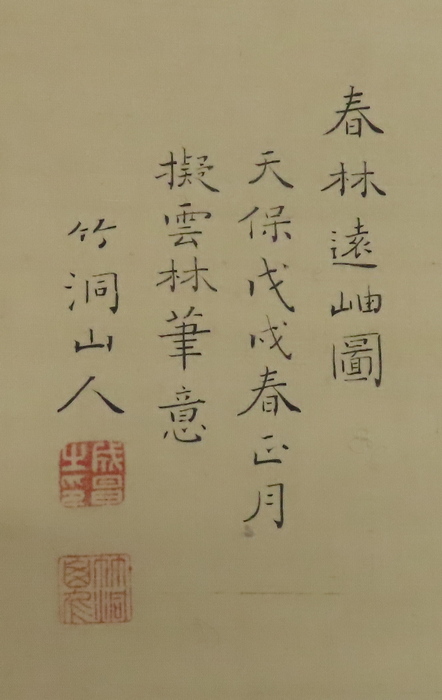 春林遠岫圖
天保戊戌春正月
擬雲林筆意
竹洞山人
成昌之印